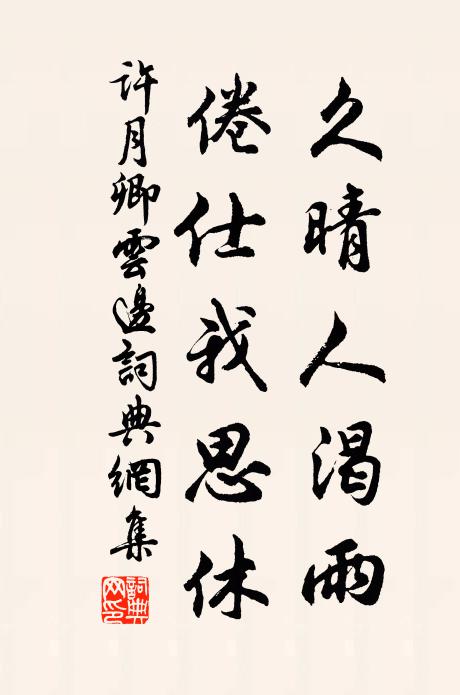 久晴人渴雨
倦仕我思休
許月卿雲邊詞典網集
詞典網印